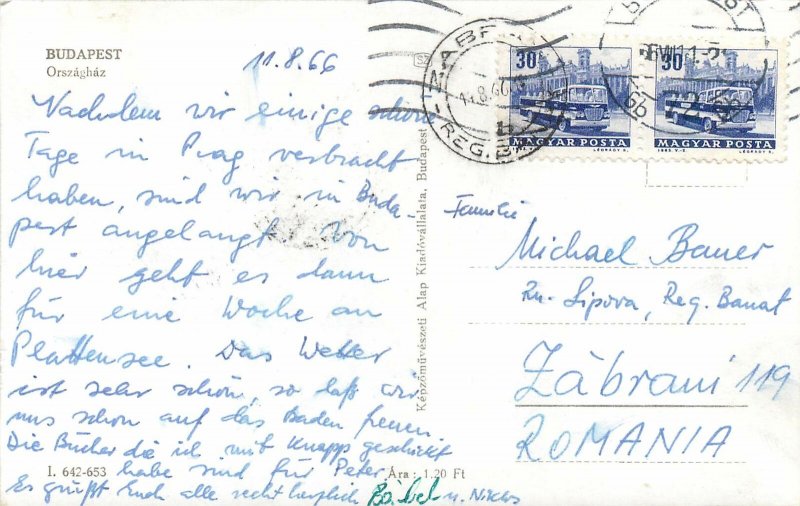 BUDAPEST
Országház
11.8.66
Nachdem wir einige schon
Tage in Prag verbracht
haben, sind wir in Buda-
pest angelangt. Von
hier geht es dann
für eine Woche an
Plattensee. Das Wetter
ist sehr schön, so daß wir
uns schon auf das Baden freun.
Die Bücher die ich mit Knapps geschickt
habe sind für Peter.
Es grüßt Euch alle recht herzlich Bäbel u. Niklos
I. 642-653
Ára: 1,20 Ft
Képzőművészeti Alap Kiadóvállalata, Budapest
30
MAGYAR POSTA
LÉGRÁDY S.
30
MAGYAR POSTA
1963.V-Z. LÉGRÁDY S.
REG. B
Familie
Michael Bauer
Rn. Lipova, Reg. Banat
Zăbrani 119
ROMANIA